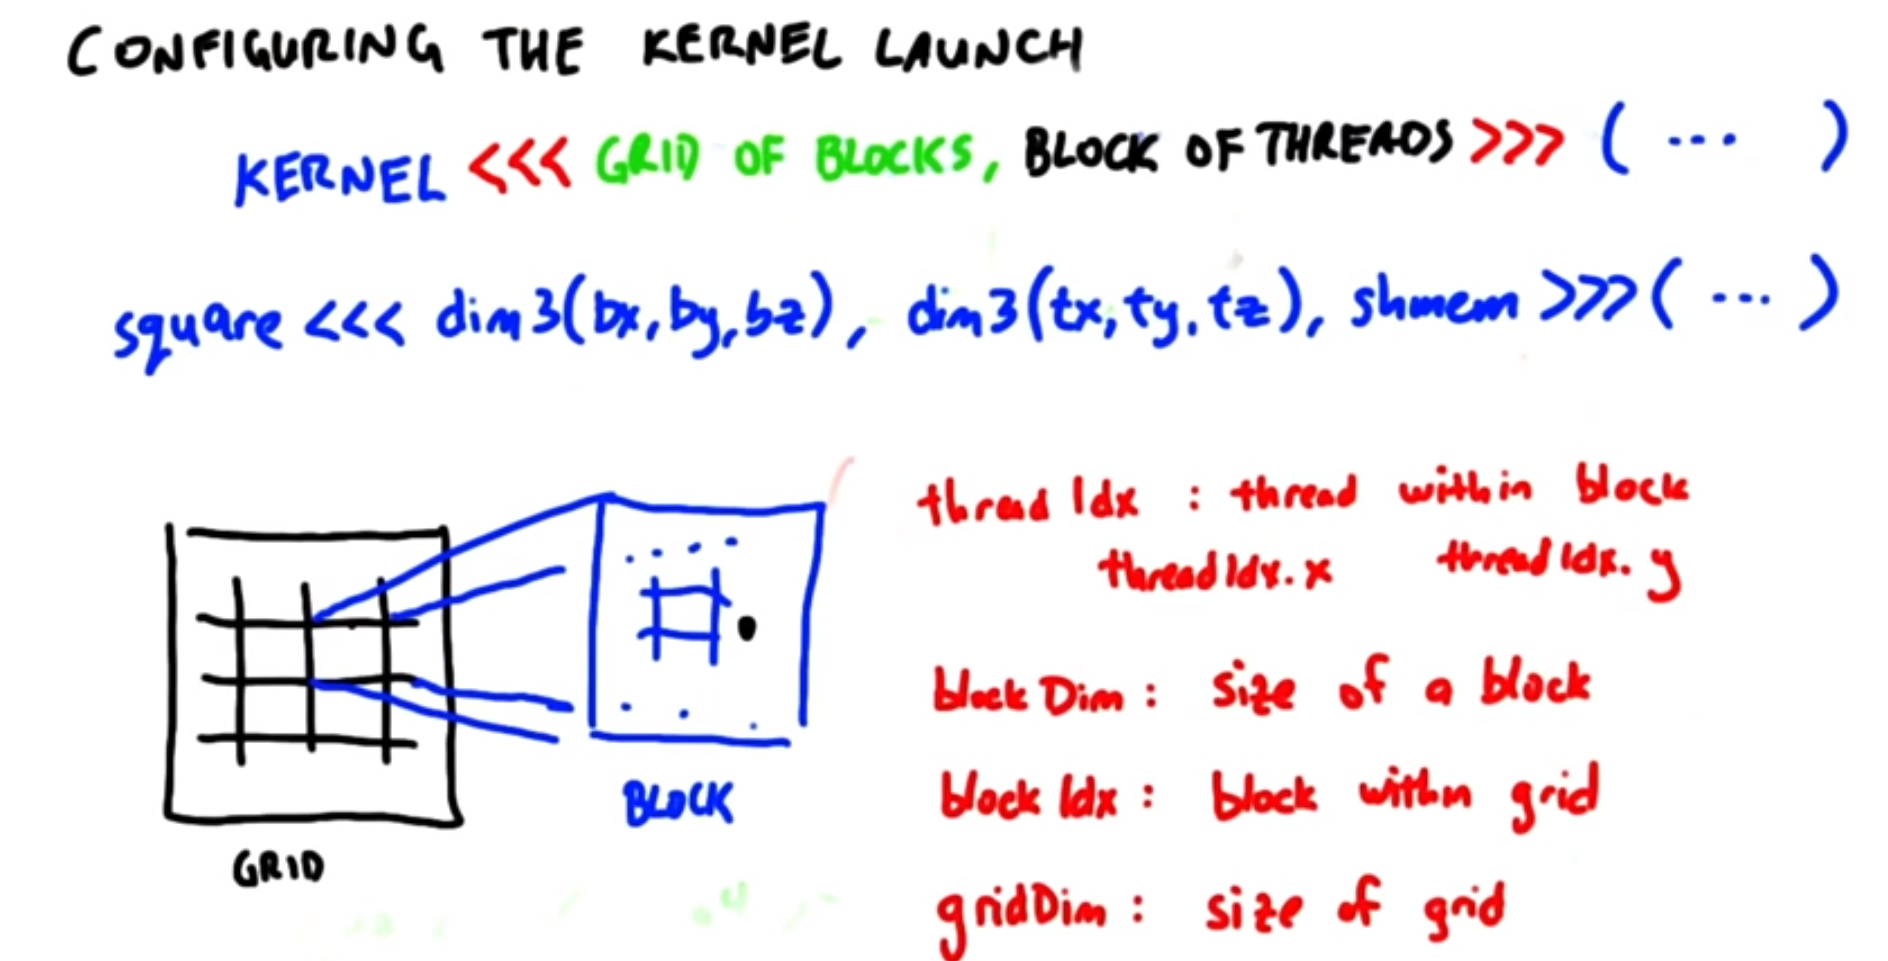 CONFIGURING THE KERNEL LAUNCH
KERNEL <<< GRID OF BLOCKS, BLOCK OF THREADS >>> ( ... )
square <<< dim3(bx,by,bz), dim3(tx,ty,tz), shmem >>> ( ... )
threadIdx : thread within block
threadIdx.x threadIdx.y
blockDim : size of a block
BLOCK
blockIdx : block within grid
GRID
gridDim : size of grid